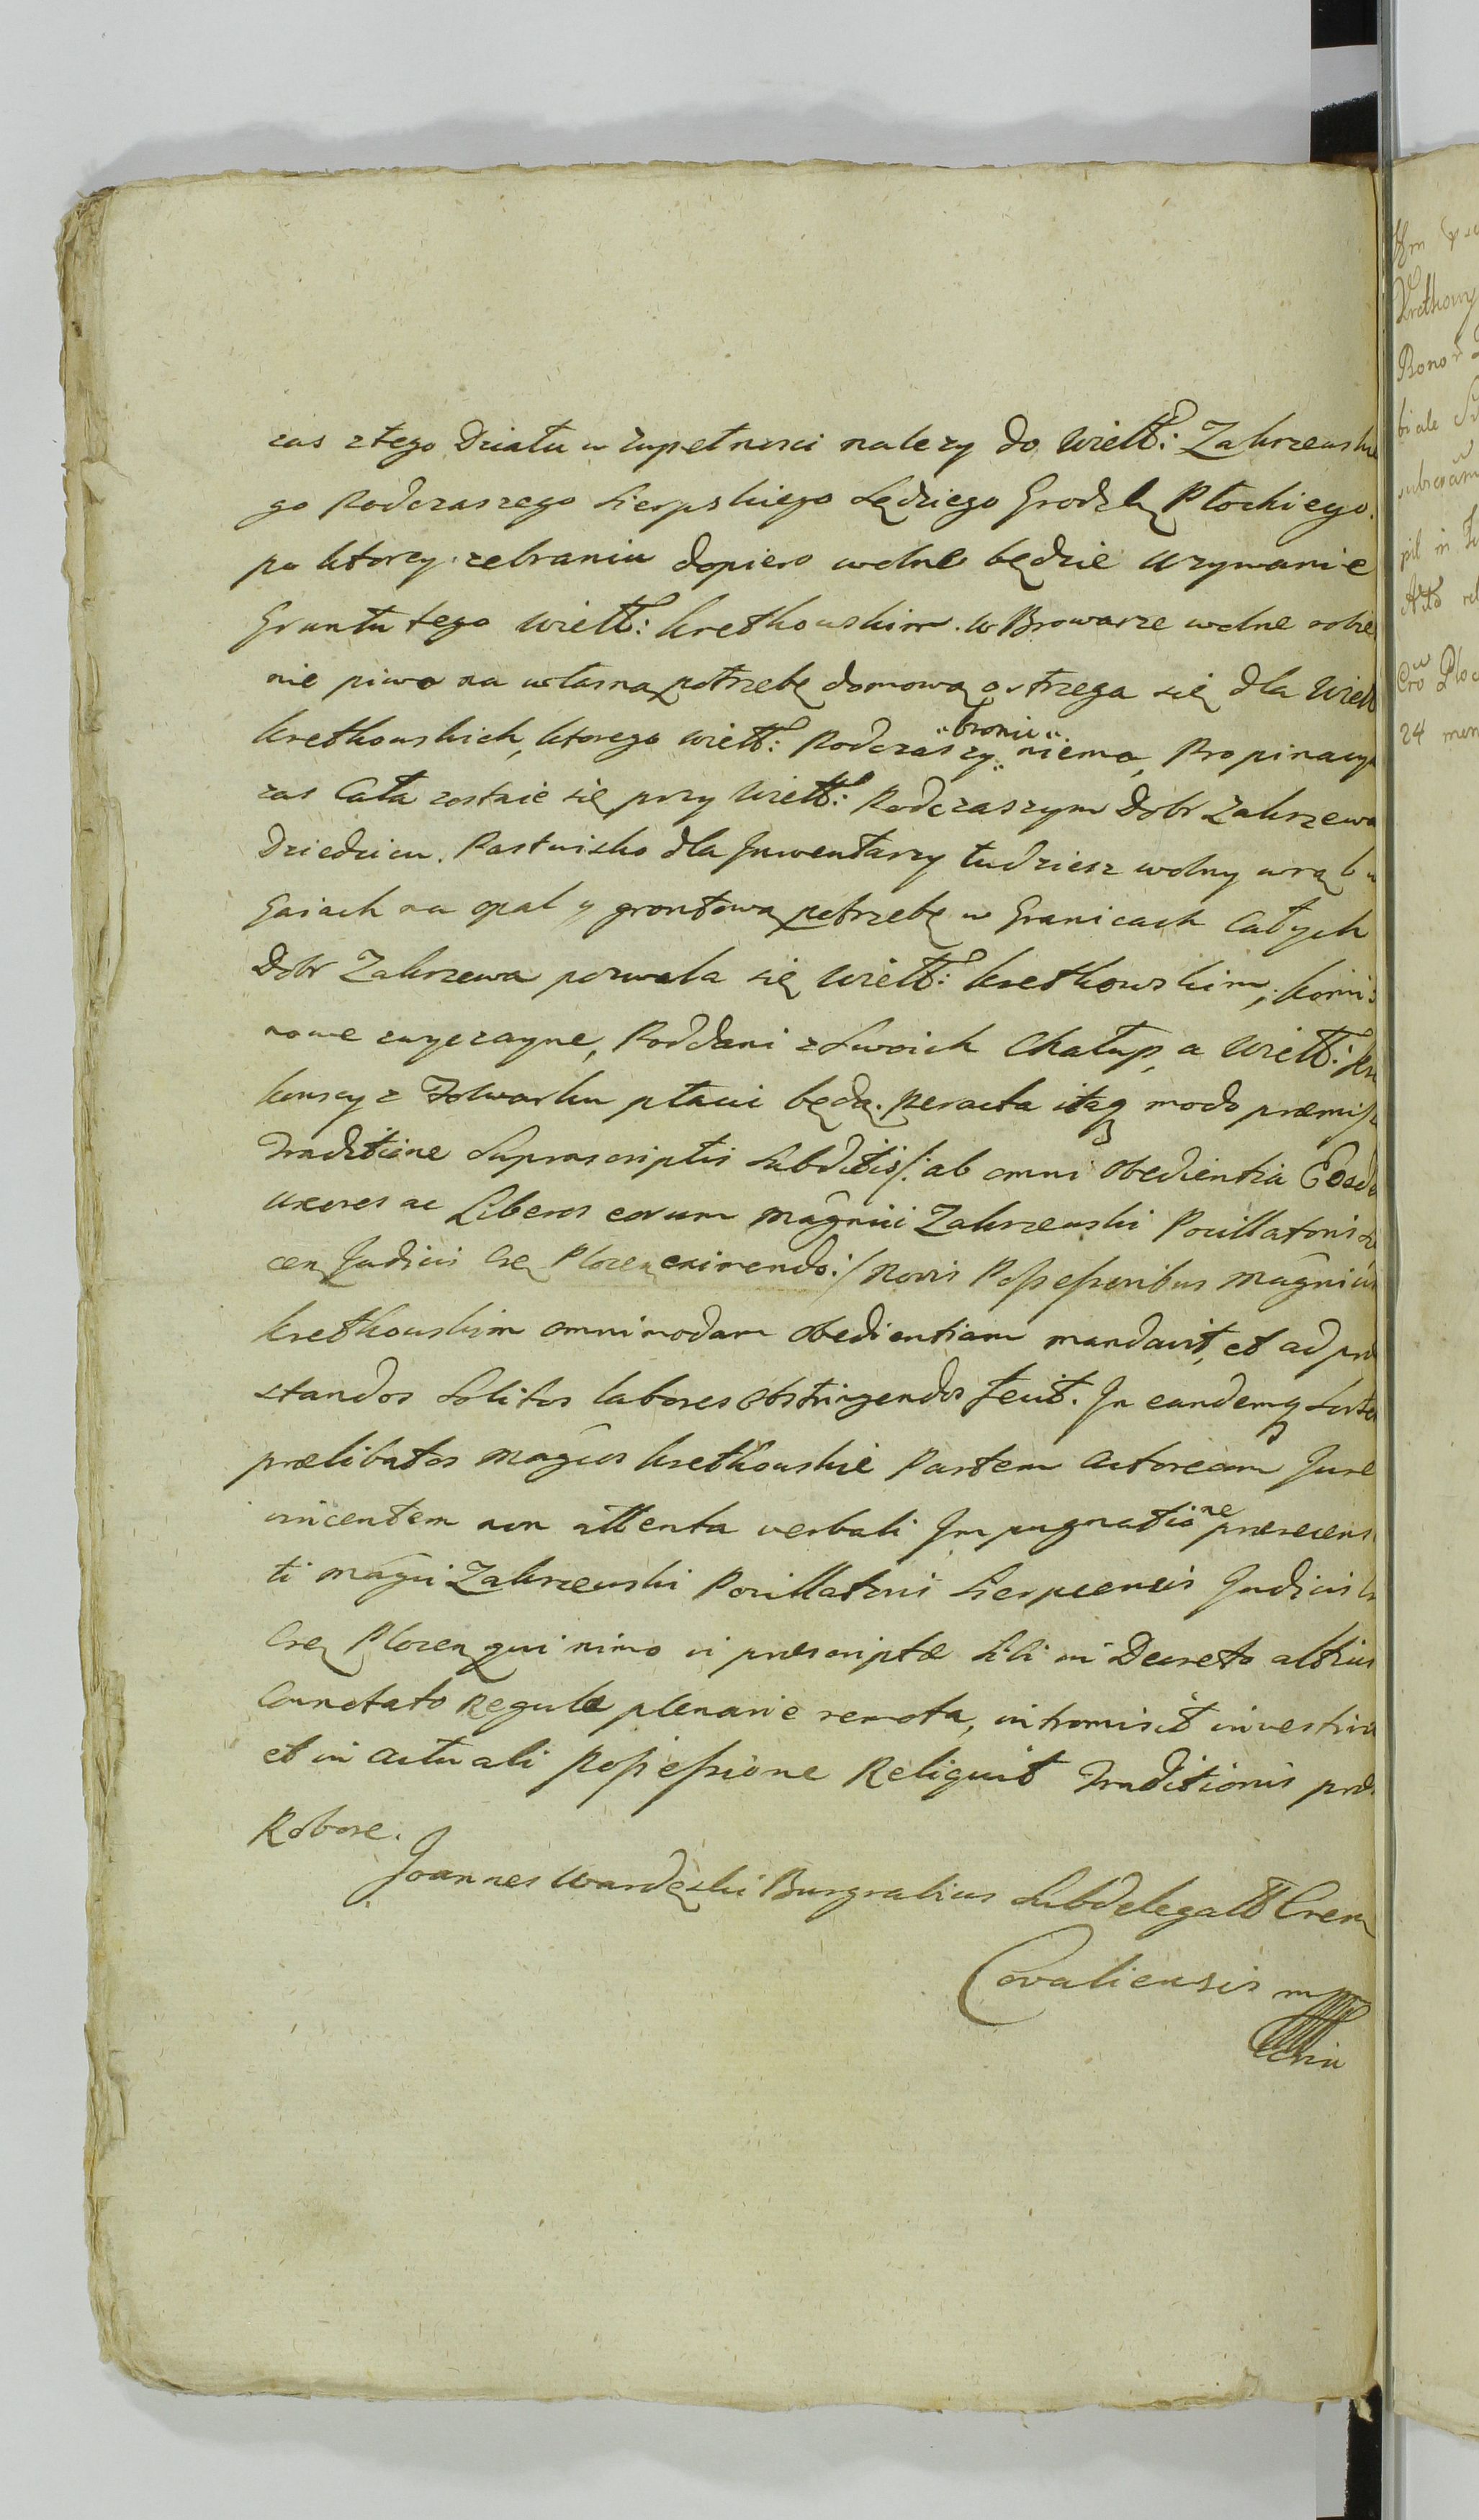 zas ztego Działu w zupełnosci nalezy do Wielb: Zakrzewskie
go Podczaszego Sierpskiego Sędziego Grodzk Płockiego.
po ktorey zebraniu dopiero wolne będzie uzywanie
Gruntu tego Wielb: Krethowskim. w Browarze wolne robie
nie piwa na własną potrzebę domową ostrzega się dla Wielb
Krethowskich, ktorego Wielb: Podczaszy "bronic" niema, Propinacya
zas Cała zostaie się przy Wielb: Podczaszym Dobr Zakrzewa
Dziedzicu. Pastwisko dla Inwentarzy tudziesz wolny wrąb w
Gaiach na opał y grontową potrzebę w Granicach Całych
Dobr Zakrzewa pozwala się Wielb: Krethowskim, komi
nowe zwyczayne, Poddani z Swoich Chałup, a Wielb: Kre
kowscy z Folwarku płacic będą. Peracta itaq modo præmisso
Traditione Suprascriptis Subditis /: ab omni Obedientia Eosde
uxores ac Liberos eorum Magnici Zakrzewski Pocillatoris Sie
cen Judicis Cas Plocen eximendo :/ Novis Possessoribus Magnicis
Krethowskim omnimodam obedientiam mandavit, et ad præ
standos Solitos labores obstringendos fecit. In eandemq Sortem
prælibatos Magcos Krethowskie Partem Actoream Jure
vincentem non attenta verbali Impugnatione prærecens
ti Magci Zakrzewski Pocillatoris Sierpcensis Judicis
Cas Plocen qui nimo vi præscriptæ Sibi in Decreto altius
Connotato Regulæ plenarie remota, intromisit investivit
et in actuali Possessione Reliquit Traditionis præs
Robore.
Joannes Wardęski Burgrabius Subdelegatt Cren
Covaliensis mpp